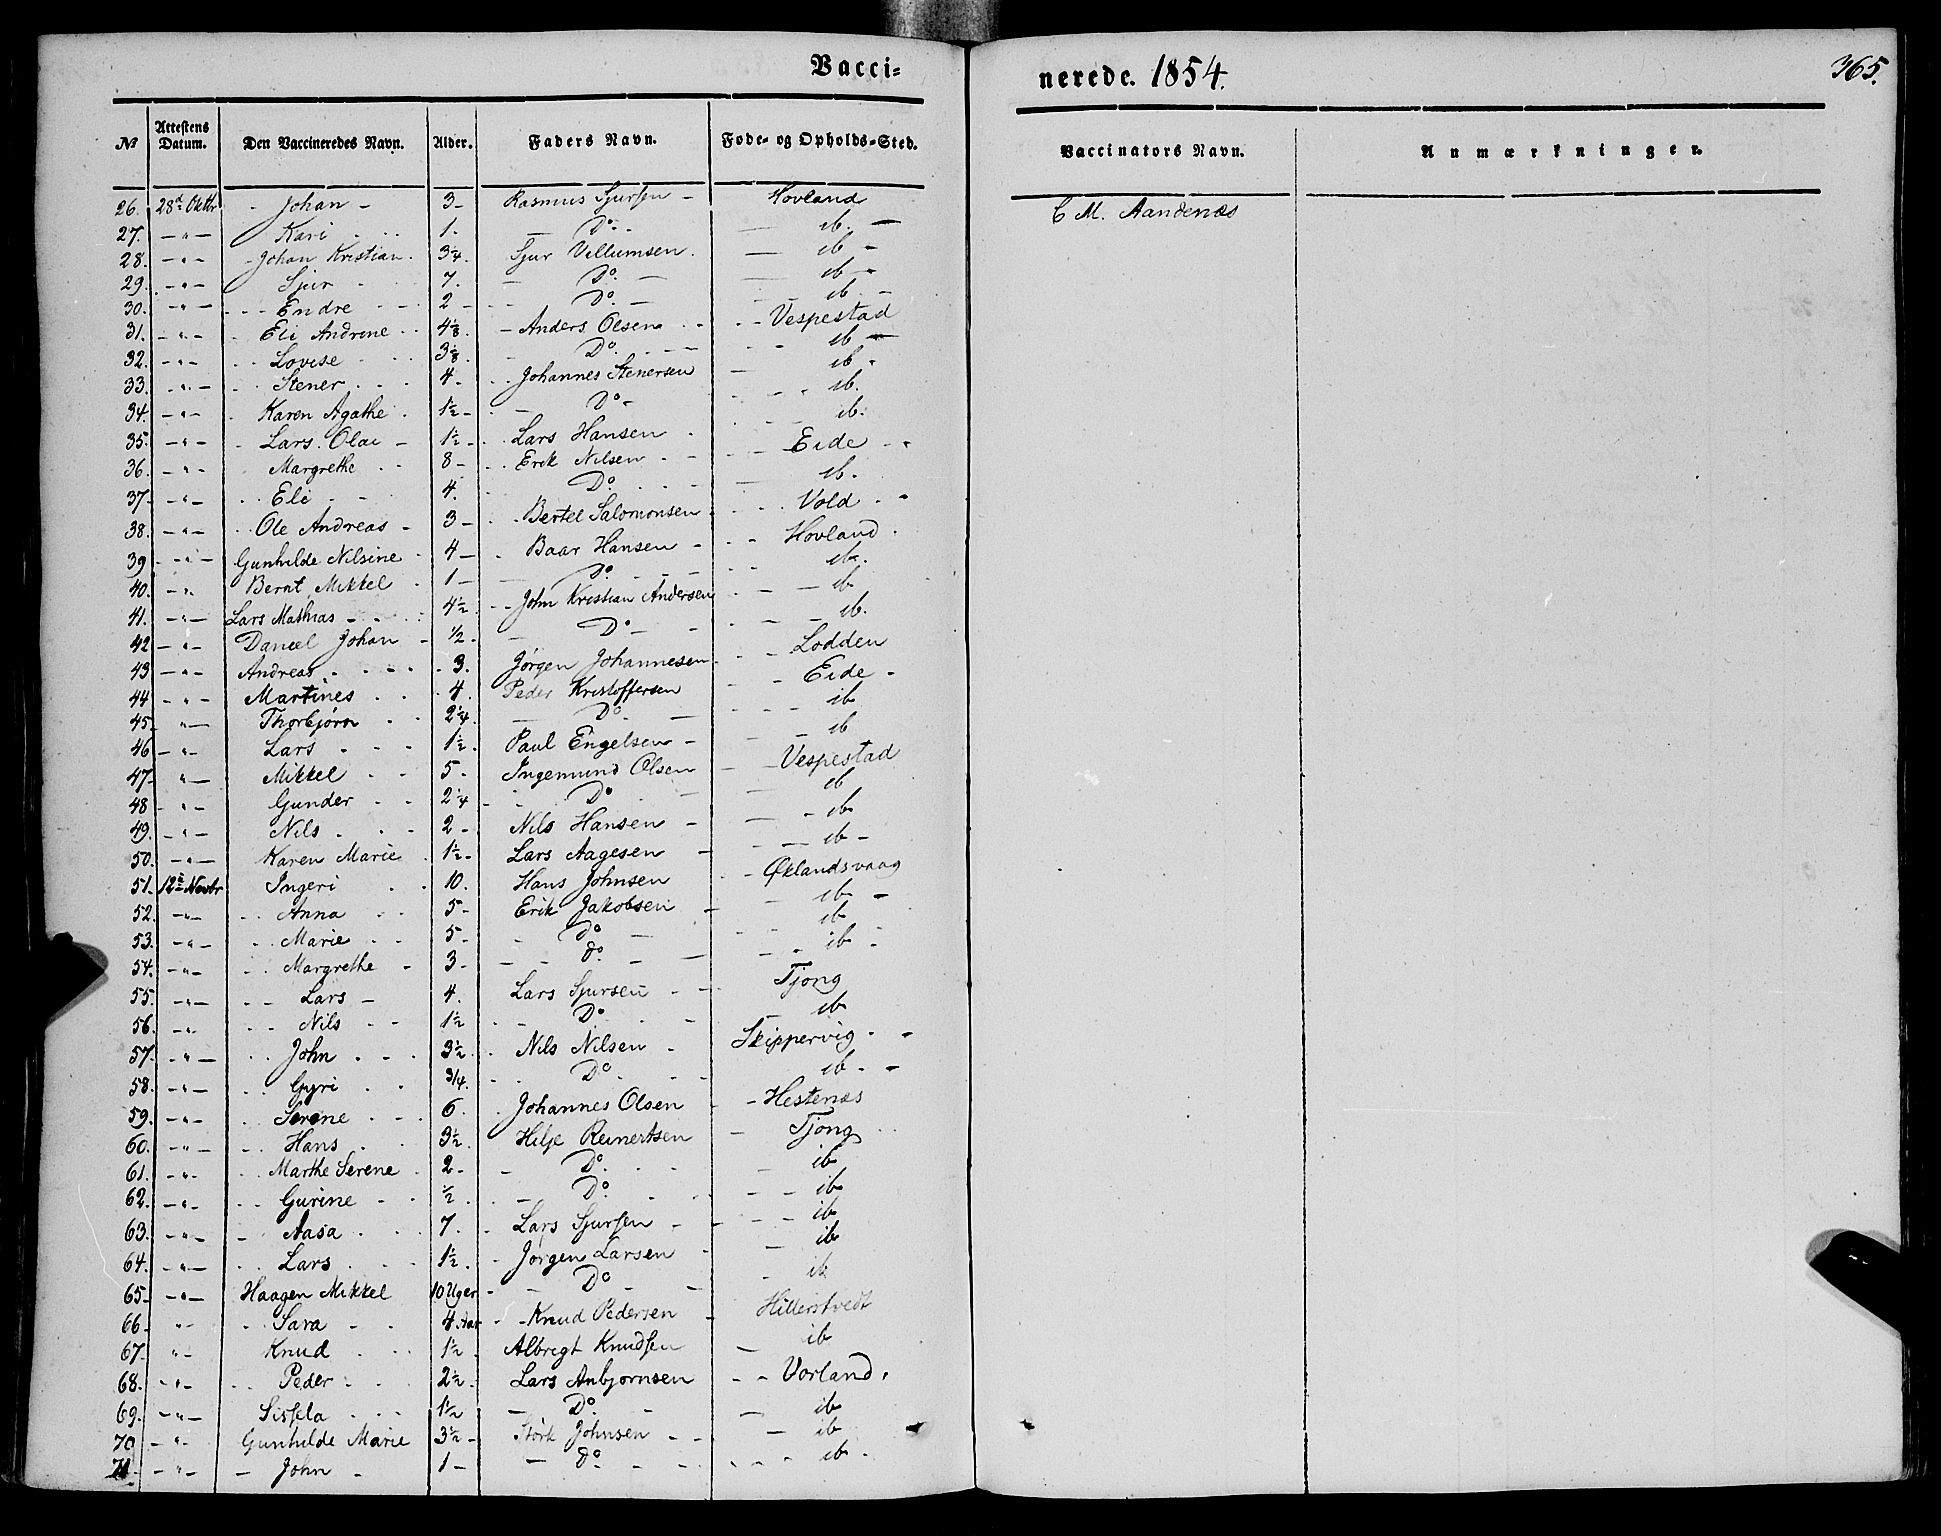 Vacci-
nerede. 1854.
365.
№ Attestens Datum. Den Vaccineredes Navn. Alder. Faders Navn. Føde- og Opholds-Sted. Vaccinators Navn. Anmærkninger.
26. 28de Oktbr - Johan - 3 - Rasmus Sjursen - Hovland C M. Aandenæs
27. - " - Kari 1. - Do - ib. -
28. - " - Johan Kristian. 3¼. Sjur Villumsen. - ib -
29. - " - Sjur 7. - Do. - ib -
30. - " - Endre 2 - Do. - ib. -
31. - " - Eli Andrine 4⅛. - Anders Olsen - Vespestad
32. - " - Lovise 3⅛. Do. - ib -
33. - " - Stener 4. Johannes Stenersen - ib -
34. - " - Karen Agathe 1½ - Do - ib.
35. - " - Lars Olai - 1½ - Lars Hansen ib.
36. - " - Margrethe 8 - Erik Nilsen - Eide
37. - " - Eli 4. Do. - ib.
38. - " - Ole Andreas - 3 - Bertel Salomonsen Vold
39 - " - Gunhilde Nilsine 4 - Baar Hansen - Hovland.
40. - " Bernt Mikkel 1 - Do. - ib.
41. - " - Lars Mathias 4½ John Kristian Andersen - ib
42 - " - Daniel Johan - ½ - Do - ib.
43 - " - Andreas 3. Jørgen Johannesen Lodden
44 - " - Martines 4. Peder Kristoffersen Eide -
45. " - Thorbjørn 2¼. - Do - ib
46 - " - Lars 1½. Paul Engelsen - ib
47. " - Mikkel 5. Ingemund Olsen - Vespestad
48 - " - Gunder 2¼ Do - ib
49. - " - Nils 2 - Nils Hansen - ib
50. - " - Karen Marie 1½ - Lars Aagesen - ib -
51. 12te Novbr Ingeri 10. Hans Johnsen - Øklandsvaag
52. - " - Anna 5 - Erik Jakobsen - ib -
53. - " - Marie 5 - Do - ib
54. - " - Margrethe - 3 - do - ib
55. - " - Lars - 4. Lars Sjursen - Tjong
56. - " - Nils 1½ - Do - ib
57. - " - John 3½. Nils Nilsen - Skippervig
58. - " - Gyri 3/4. Do. - ib
59. - " - Serene 6. Johannes Olsen - Hestenæs
60. - " - Hans 3½. Hilje Reinertsen - Tjong
61. - " - Marthe Serene 2 - Do. - ib
62. - " - Gurine ½. Do. - ib
63. - " - Aasa 7. Lars Sjursen - ib
64. - " - Lars 1½. Jørgen Larsen - ib
65 - " - Haagen Mikkel 10 Uger - Do - ib
66 - " - Sara 4. Aar - Knud Pedersen Hillerstvedt
67. " - Knud 1½. Albrigt Knudsen - ib
68. - " - Peder 2½. Lars Anbjørnsen - Vorland.
69. - " - Sissela 1½ - Do - ib
70 - " - Gunhilde Marie 3½ - Størk Johnsen - ib
71. - " - John - 1 - do. - ib